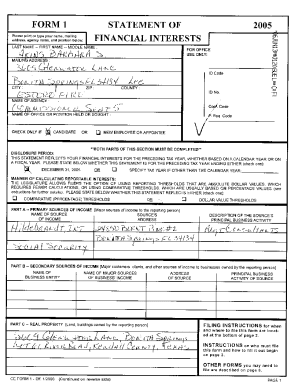 FORM 1
STATEMENT OF
FINANCIAL INTERESTS
2005
Please print or type your name, mailing
address, agency name, and position below:
LAST NAME -- FIRST NAME -- MIDDLE NAME
BARBARA S
FOR OFFICE
USE ONLY:
MAILING ADDRESS
LANE
BONITA SPRINGS FL 34134 LEE
CITY ZIP COUNTY
ESTERO FIRE
NAME OF AGENCY
COMMISSIONER SEAT 5
NAME OF OFFICE OR POSITION HELD OR SOUGHT
CHECK ONLY IF CANDIDATE OR NEW EMPLOYEE OR APPOINTEE
ID Code
ID No.
Conf. Code
P. Req. Code
**BOTH PARTS OF THIS SECTION MUST BE COMPLETED**
DISCLOSURE PERIOD:
THIS STATEMENT REFLECTS YOUR FINANCIAL INTERESTS FOR THE PRECEDING TAX YEAR, WHETHER BASED ON A CALENDAR YEAR OR ON
A FISCAL YEAR. PLEASE STATE BELOW WHETHER THIS STATEMENT IS FOR THE PRECEDING TAX YEAR ENDING EITHER (check one):
DECEMBER 31, 2005 OR SPECIFY TAX YEAR IF OTHER THAN THE CALENDAR YEAR:
MANNER OF CALCULATING REPORTABLE INTERESTS:
THE LEGISLATURE ALLOWS FILERS THE OPTION OF USING REPORTING THRESHOLDS THAT ARE ABSOLUTE DOLLAR VALUES, WHICH
REQUIRES FEWER CALCULATIONS, OR USING COMPARATIVE THRESHOLDS, WHICH ARE USUALLY BASED ON PERCENTAGE VALUES (see
instructions for further details). PLEASE STATE BELOW WHETHER THIS STATEMENT REFLECTS EITHER (check one):
COMPARATIVE (PERCENTAGE) THRESHOLDS OR DOLLAR VALUE THRESHOLDS
PART A -- PRIMARY SOURCES OF INCOME [Major sources of income to the reporting person]
NAME OF SOURCE
OF INCOME
SOURCE'S
ADDRESS
DESCRIPTION OF THE SOURCE'S
PRINCIPAL BUSINESS ACTIVITY
BONITA SPRINGS FL 34134
SOCIAL SECURITY
PART B -- SECONDARY SOURCES OF INCOME [Major customers, clients, and other sources of income to businesses owned by the reporting person]
NAME OF
BUSINESS ENTITY
NAME OF MAJOR SOURCES
OF BUSINESS' INCOME
ADDRESS
OF SOURCE
PRINCIPAL BUSINESS
ACTIVITY OF SOURCE
PART C -- REAL PROPERTY [Land, buildings owned by the reporting person]
LANE, BONITA SPRINGS
KENDALL COUNTY, TEXAS
FILING INSTRUCTIONS for when
and where to file this form are located
at the bottom of page 2.
INSTRUCTIONS on who must file
this form and how to fill it out begin
on page 3.
OTHER FORMS you may need to
file are described on page 6.
CE FORM 1 - Eff. 1/2006 (Continued on reverse side) PAGE 1